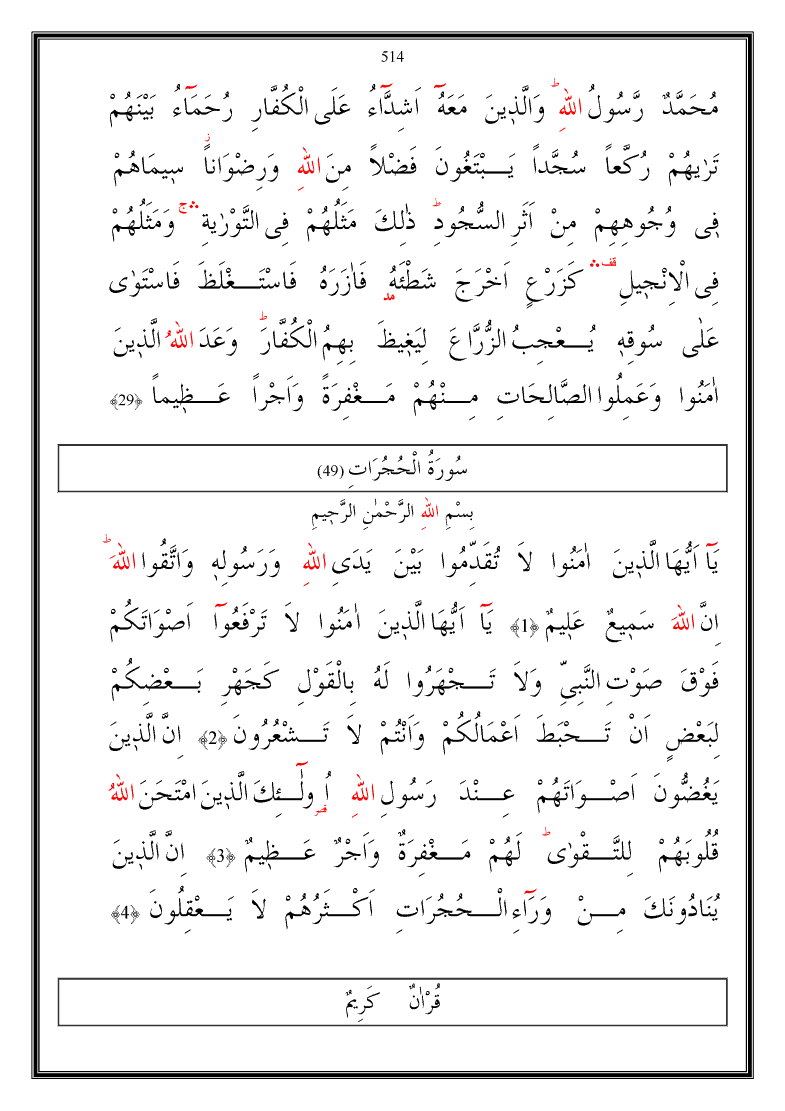 514
مُحَمَّدٌ رَّسُولُ اللّٰهِ ؕ وَالَّذ۪ينَ مَعَهُٓ اَشِدَّٓاءُ عَلَى الْكُفَّارِ رُحَمَٓاءُ بَيْنَهُمْ
تَرٰيهُمْ رُكَّعاً سُجَّداً يَبْتَغُونَ فَضْلاً مِنَ اللّٰهِ وَرِضْوَاناًؗ س۪يمَاهُمْ
ف۪ى وُجُوهِهِمْ مِنْ اَثَرِ السُّجُودِؕ ذٰلِكَ مَثَلُهُمْ فِى التَّوْرٰيةِۛۚ وَمَثَلُهُمْ
فِى الْاِنْج۪يلِ۠ۛ كَزَرْعٍ اَخْرَجَ شَطْئَهُ فَاٰزَرَهُ فَاسْتَغْلَظَ فَاسْتَوٰى
عَلٰى سُوقِه۪ يُعْجِبُ الزُّرَّاعَ لِيَغ۪يظَ بِهِمُ الْكُفَّارَؕ وَعَدَ اللّٰهُ الَّذ۪ينَ
اٰمَنُوا وَعَمِلُوا الصَّالِحَاتِ مِنْهُمْ مَغْفِرَةً وَاَجْراً عَظ۪يماً ﴿29﴾
سُورَةُ الْحُجُرَاتِ (49)
بِسْمِ اللّٰهِ الرَّحْمٰنِ الرَّح۪يمِ
يَٓا اَيُّهَا الَّذ۪ينَ اٰمَنُوا لاَ تُقَدِّمُوا بَيْنَ يَدَىِ اللّٰهِ وَرَسُولِه۪ وَاتَّقُوا اللّٰهَؕ
اِنَّ اللّٰهَ سَم۪يعٌ عَل۪يمٌ ﴿1﴾ يَٓا اَيُّهَا الَّذ۪ينَ اٰمَنُوا لاَ تَرْفَعُٓوا اَصْوَاتَكُمْ
فَوْقَ صَوْتِ النَّبِىِّ وَلاَ تَجْهَرُوا لَهُ بِالْقَوْلِ كَجَهْرِ بَعْضِكُمْ
لِبَعْضٍ اَنْ تَحْبَطَ اَعْمَالُكُمْ وَاَنْتُمْ لاَ تَشْعُرُونَ ﴿2﴾ اِنَّ الَّذ۪ينَ
يَغُضُّونَ اَصْوَاتَهُمْ عِنْدَ رَسُولِ اللّٰهِ اُو۬لٰٓئِكَ الَّذ۪ينَ امْتَحَنَ اللّٰهُ
قُلُوبَهُمْ لِلتَّقْوٰىؕ لَهُمْ مَغْفِرَةٌ وَاَجْرٌ عَظ۪يمٌ ﴿3﴾ اِنَّ الَّذ۪ينَ
يُنَادُونَكَ مِنْ وَرَٓاءِ الْحُجُرَاتِ اَكْثَرُهُمْ لاَ يَعْقِلُونَ ﴿4﴾
قُرْاٰنٌ كَرِيمٌ